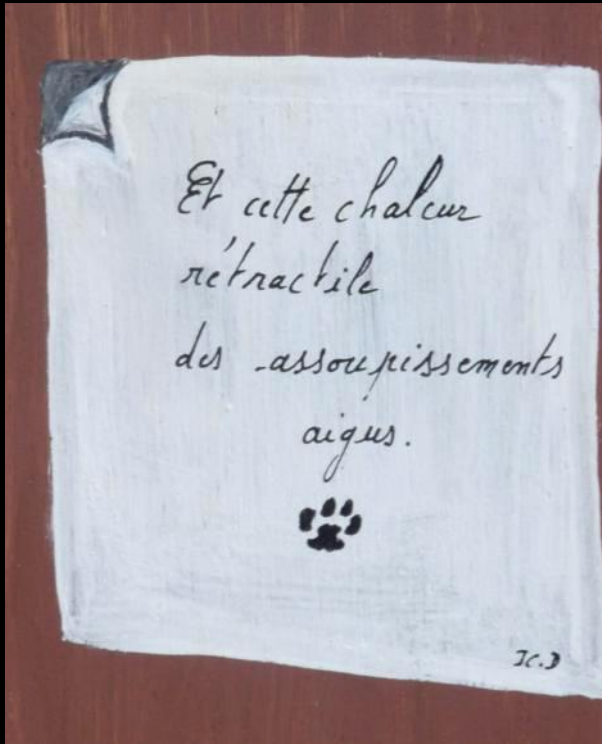 Et cette chaleur
rétractile
des assoupissements
aigus.
JC.D